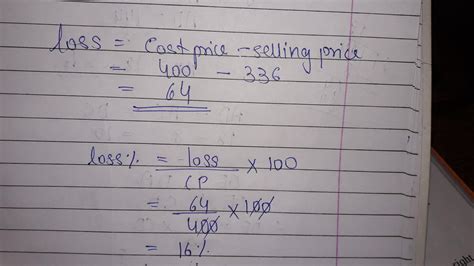 loss = Cost price - selling price
= 400 - 336
= 64
loss% = loss/CP × 100
= 64/400 × 100
= 16%